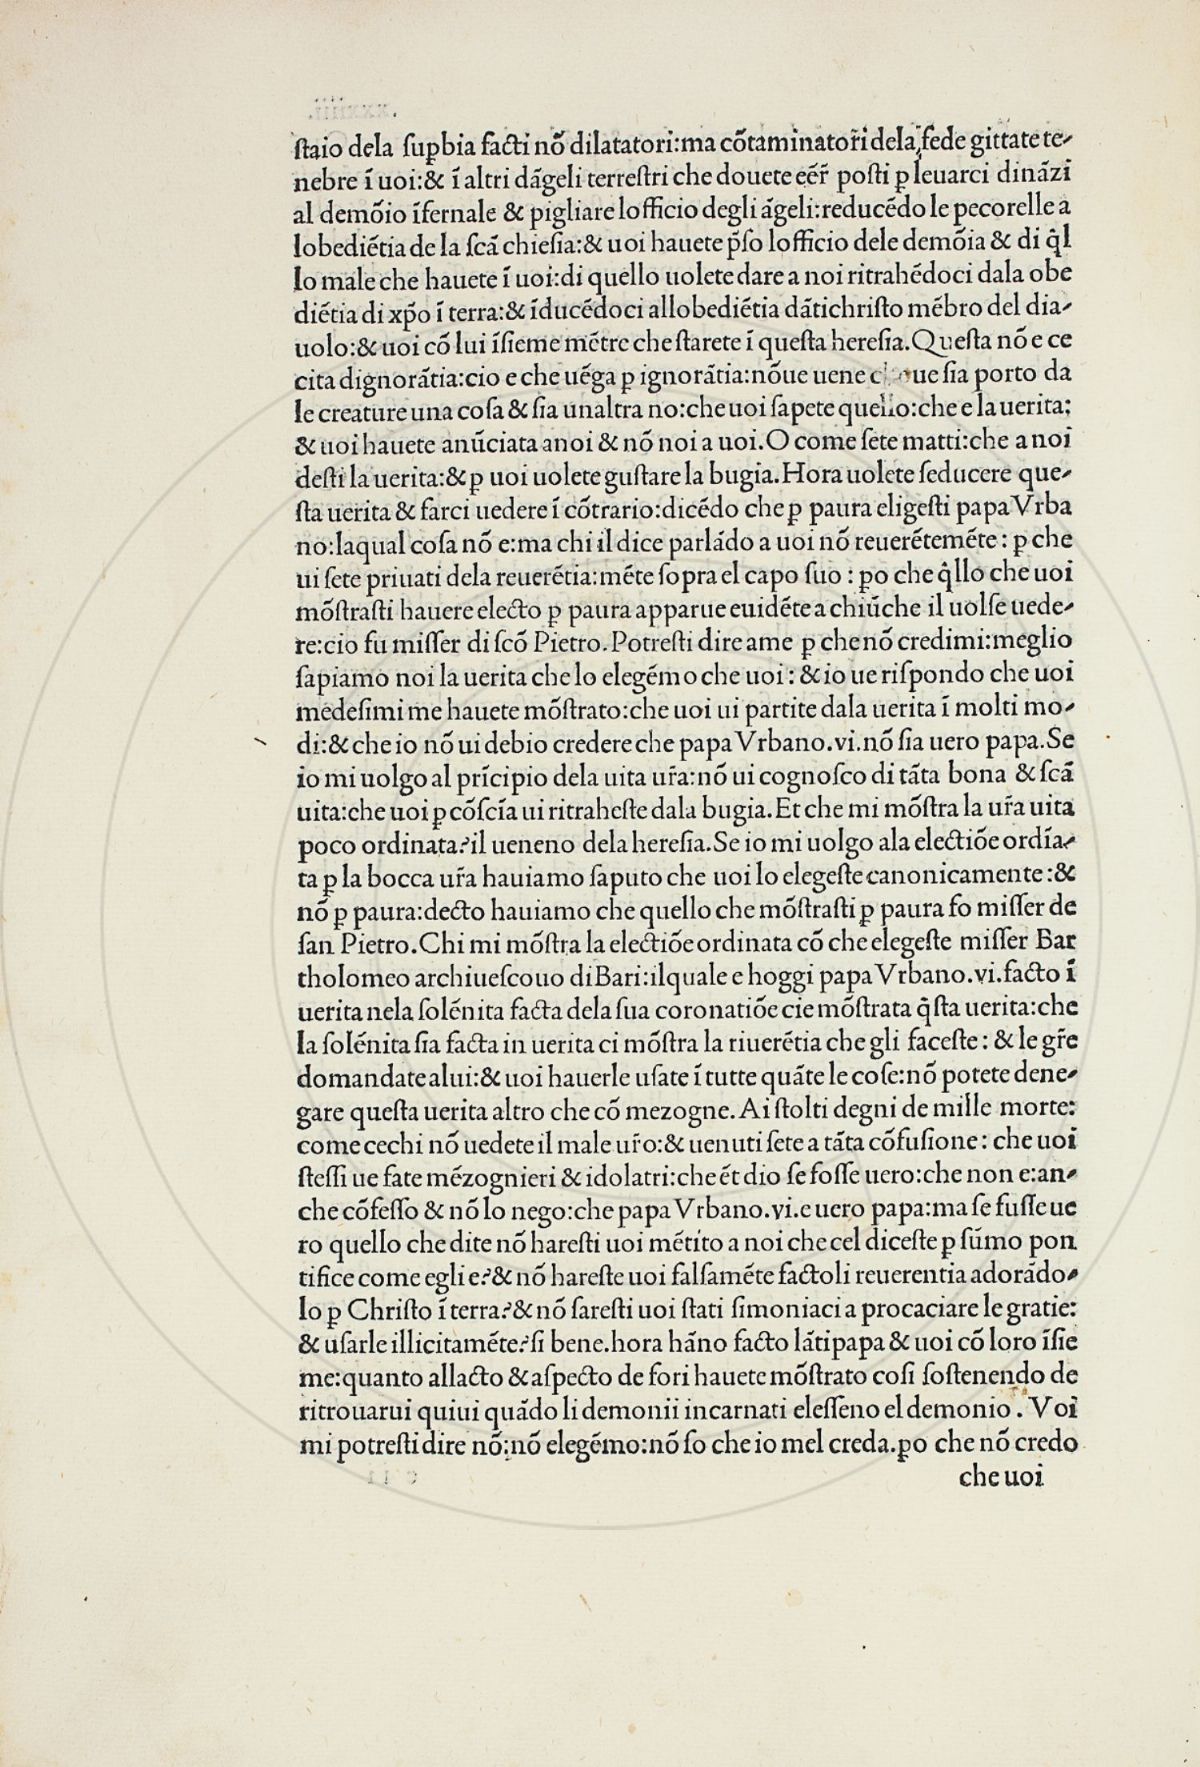 ſtaio dela ſuꝑbia facti nō dilatatori:ma cōtaminatori dela fede gittate te-
nebre ī uoi:& ī altri dāgeli terreſtri che douete eēr̄ poſti ꝑ leuarci dināzi
al demōio īfernale & pigliare lofficio degli āgeli:reducēdo le pecorelle a
lobediētia de la ſcā chieſia:& uoi hauete p̄ſo lofficio dele demōia & di q̄l
lo male che hauete ī uoi:di quello uolete dare a noi ritrahēdoci dala obe
diētia di xp̄o ī terra:& īducēdoci allobediētia dātichriſto mēbro del dia-
uolo:& uoi cō lui īſieme mētre che ſtarete ī queſta hereſia. Queſta nō e ce
cita dignorātia:cio e che uēga ꝑ ignorātia:nōue uene ue ſia porto da
le creature una coſa & ſia unaltra no:che uoi ſapete quello:che e la uerita:
& uoi hauete anūciata a noi & nō noi a uoi. O come ſete matti:che a noi
deſti la uerita:& ꝑ uoi uolete guſtare la bugia. Hora uolete ſeducere que-
ſta uerita & farci uedere ī cōtrario:dicēdo che ꝑ paura eligeſti papa Vrba
no:laqual coſa nō e:ma chi il dice parlādo a uoi nō reuerētemēte: ꝑ che
ui ſete priuati dela reuerētia:mēte ſopra el capo ſuo : ꝑo che q̄llo che uoi
mōſtraſti hauere electo ꝑ paura apparue euidēte a chiūche il uolſe uede-
re:cio fu miſſer di ſcō Pietro. Potreſti dire ame ꝑ che nō credimi:meglio
ſapiamo noi la uerita che lo elegēmo che uoi : & io ue riſpondo che uoi
medeſimi me hauete mōſtrato:che uoi ui partite dala uerita ī molti mo-
di:& che io nō ui debio credere che papa Vrbano.vi.nō ſia uero papa. Se
io mi uolgo al prīcipio dela uita ur̄a:nō ui cognoſco di tāta bona & ſcā
uita:che uoi ꝑ cōſcīa ui ritraheſte dala bugia. Et che mi mōſtra la ur̄a uita
poco ordinata?il ueneno dela hereſia. Se io mi uolgo ala electiōe ordīa-
ta ꝑ la bocca ur̄a hauiamo ſaputo che uoi lo elegeſte canonicamente :&
nō ꝑ paura:decto hauiamo che quello che mōſtraſti ꝑ paura fo miſſer de
ſan Pietro. Chi mi mōſtra la electiōe ordinata cō che elegeſte miſſer Bar
tholomeo archiueſcouo di Bari:ilquale e hoggi papa Vrbano.vi.facto ī
uerita nela ſolēnita facta dela ſua coronatiōe cie mōſtrata q̄ſta uerita:che
la ſolēnita ſia facta in uerita ci mōſtra la riuerētia che gli faceſte : & le gr̄e
domandate alui:& uoi hauerle uſate ī tutte quāte le coſe:nō potete dene-
gare queſta uerita altro che cō mezogne. Ai ſtolti degni de mille morte:
come cechi nō uedete il male ur̄o:& uenuti ſete a tāta cōfuſione : che uoi
ſteſſi ue fate mēzognieri & idolatri:che ēt dio ſe foſſe uero:che non e:an-
che cōfeſſo & nō lo nego:che papa Vrbano.vi.e uero papa:ma ſe fuſſe ue
ro quello che dite nō hareſti uoi mētito a noi che cel diceſte ꝑ ſūmo pon
tifice come egli e?& nō hareſte uoi falſamēte factoli reuerentia adorādo-
lo ꝑ Chriſto ī terra?& nō ſareſti uoi ſtati ſimoniaci a procaciare le gratie:
& uſarle illicitamēte?ſi bene.hora hāno facto lātipapa & uoi cō loro īſie
me:quanto allacto & aſpecto de fori hauete mōſtrato coſi ſoſtenendo de
ritrouarui quiui quādo li demonii incarnati eleſſeno el demonio. Voi
mi potreſti dire nō:nō elegēmo:nō ſo che io mel creda.ꝑo che nō credo
che uoi